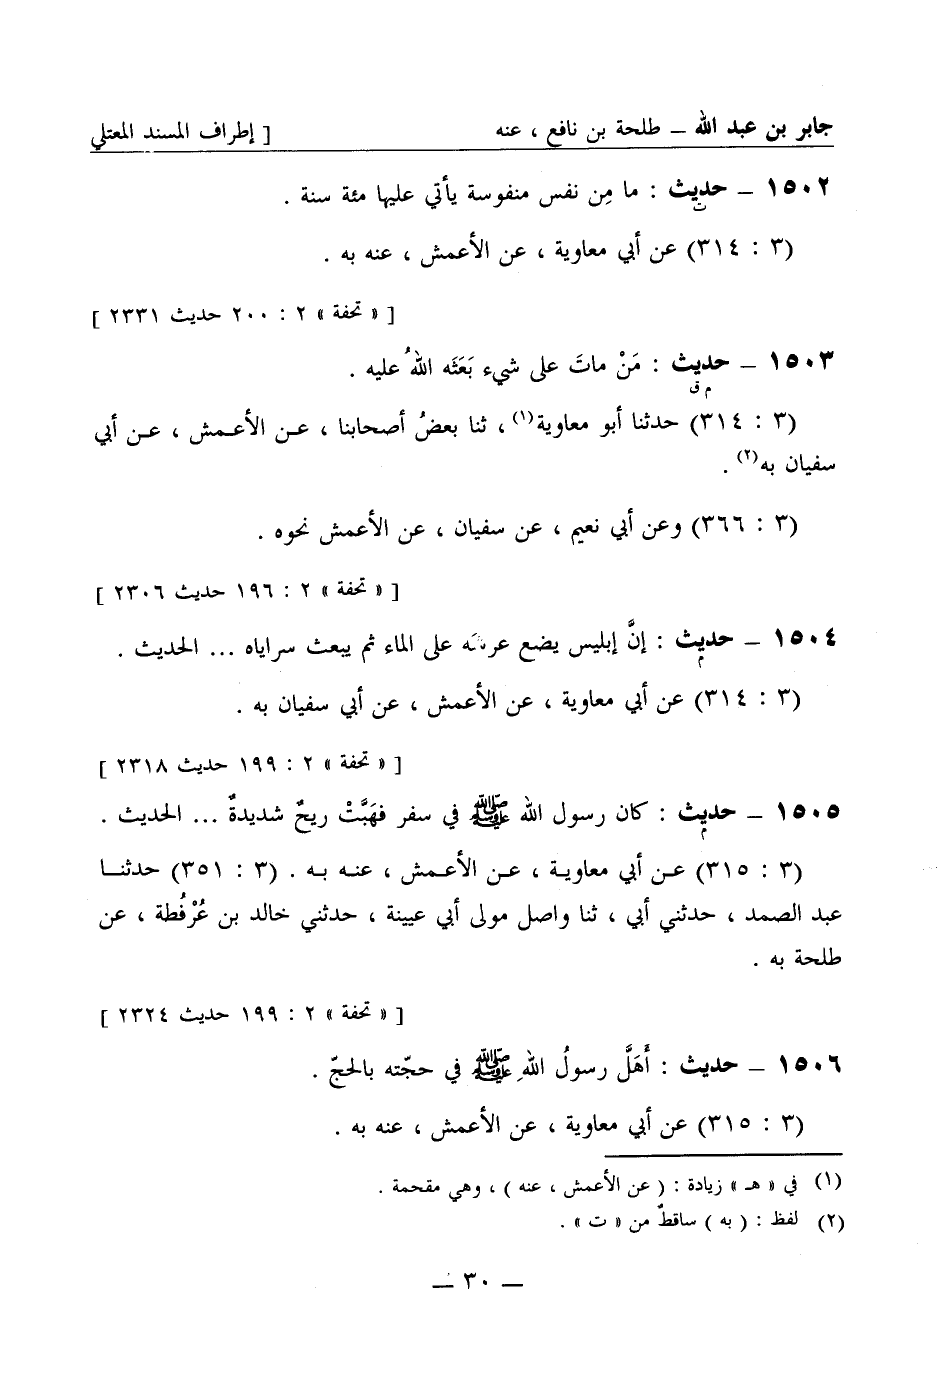 جابر بن عبد الله – طلحة بن نافع ، عنه [ إطراف المسند المعتلي
١٥٠٢ – حديث : ما مِن نفس منفوسة يأتي عليها مئة سنة .
ت
(٣ : ٣١٤) عن أبي معاوية ، عن الأعمش ، عنه به .
[ « تحفة » ٢ : ٢٠٠ حديث ٢٣٣١ ]
١٥٠٣ – حديث : مَنْ ماتَ على شيء بَعَثَه اللهُ عليه .
م ق
(٣ : ٣١٤) حدثنا أبو معاوية(١) ، ثنا بعضُ أصحابنا ، عن الأعمش ، عن أبي
سفيان به(٢) .
(٣ : ٣٦٦) وعن أبي نعيم ، عن سفيان ، عن الأعمش نحوه .
[ « تحفة » ٢ : ١٩٦ حديث ٢٣٠٦ ]
١٥٠٤ – حديث : إنَّ إبليس يضع عرشه على الماء ثم يبعث سراياه ... الحديث .
م
(٣ : ٣١٤) عن أبي معاوية ، عن الأعمش ، عن أبي سفيان به .
[ « تحفة » ٢ : ١٩٩ حديث ٢٣١٨ ]
١٥٠٥ – حديث : كان رسول الله ﷺ في سفر فهَبَّتْ ريحٌ شديدةٌ ... الحديث .
م
(٣ : ٣١٥) عن أبي معاوية ، عن الأعمش ، عنه به . (٣ : ٣٥١) حدثنا
عبد الصمد ، حدثني أبي ، ثنا واصل مولى أبي عيينة ، حدثني خالد بن عُرْفُطة ، عن
طلحة به .
[ « تحفة » ٢ : ١٩٩ حديث ٢٣٢٤ ]
١٥٠٦ – حديث : أَهَلَّ رسولُ اللهِ ﷺ في حجّته بالحجّ .
(٣ : ٣١٥) عن أبي معاوية ، عن الأعمش ، عنه به .
(١) في « هـ » زيادة : ( عن الأعمش ، عنه ) ، وهي مقحمة .
(٢) لفظ : ( به ) ساقطٌ من « ت » .
– ٣٠ –